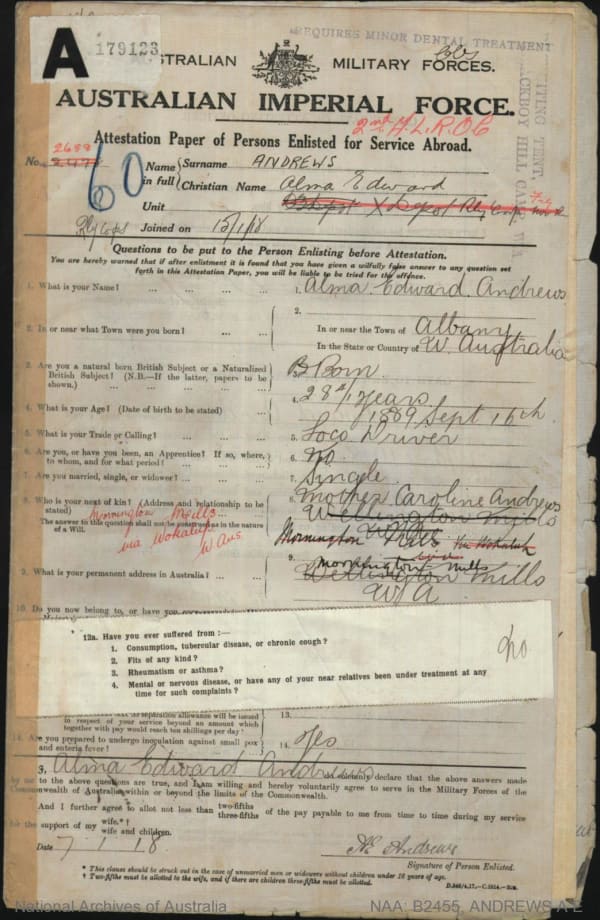 REQUIRES MINOR DENTAL TREATMENT
A 179123
AUSTRALIAN MILITARY FORCES.
AUSTRALIAN IMPERIAL FORCE.
Attestation Paper of Persons Enlisted for Service Abroad.
No.
60
Name in full
Surname ANDREWS
Christian Name Alma Edward
Unit
Joined on 15/1/18
Questions to be put to the Person Enlisting before Attestation.
You are hereby warned that if after enlistment it is found that you have given a wilfully false answer to any question set
forth in this Attestation Paper, you will be liable to be tried for the offence.
1. What is your Name? ... ... 1. Alma Edward Andrews
2. In or near what Town were you born? ... 2. In or near the Town of Albany
In the State or Country of W. Australia
3. Are you a natural born British Subject or a Naturalized
British Subject? (N.B.—If the latter, papers to be
shown.) 3. B Born
4. What is your Age? (Date of birth to be stated) ... 4. 28 Years
1889 Sept 16th
5. What is your Trade or Calling? ... 5. Loco Driver
6. Are you, or have you been, an Apprentice? If so, where,
to whom, and for what period? ... 6. No
7. Are you married, single, or widower? ... 7. Single
8. Who is your next of kin? (Address and relationship to be
stated) 8. Mother Caroline Andrews
Wellington Mills
The answer to this question shall not be construed as in the nature
of a Will.
Mornington Mills
via Wokalup
W Aus
Mornington Mills Via Wokalup
9. What is your permanent address in Australia? ... 9. Mornington Mills
Wellington Mills
WA
10. Do you now belong to, or have you
12a. Have you ever suffered from :—
1. Consumption, tubercular disease, or chronic cough?
2. Fits of any kind?
3. Rheumatism or asthma?
4. Mental or nervous disease, or have any of your near relatives been under treatment at any
time for such complaints?
No
separation allowance will be issued
in respect of your service beyond an amount which
together with pay would reach ten shillings per day? 13.
14. Are you prepared to undergo inoculation against small pox
and enteric fever? 14. Yes
I, Alma Edward Andrews solemnly declare that the above answers made
by me to the above questions are true, and I am willing and hereby voluntarily agree to serve in the Military Forces of the
Commonwealth of Australia within or beyond the limits of the Commonwealth.
And I further agree to allot not less than two-fifths three-fifths of the pay payable to me from time to time during my service
for the support of my wife.*† wife and children.
Date 7.1.18. AE Andrews
Signature of Person Enlisted.
* This clause should be struck out in the case of unmarried men or widowers without children under 16 years of age.
† Two-fifths must be allotted to the wife, and if there are children three-fifths must be allotted.
National Archives of Australia NAA: B2455, ANDREWS A E